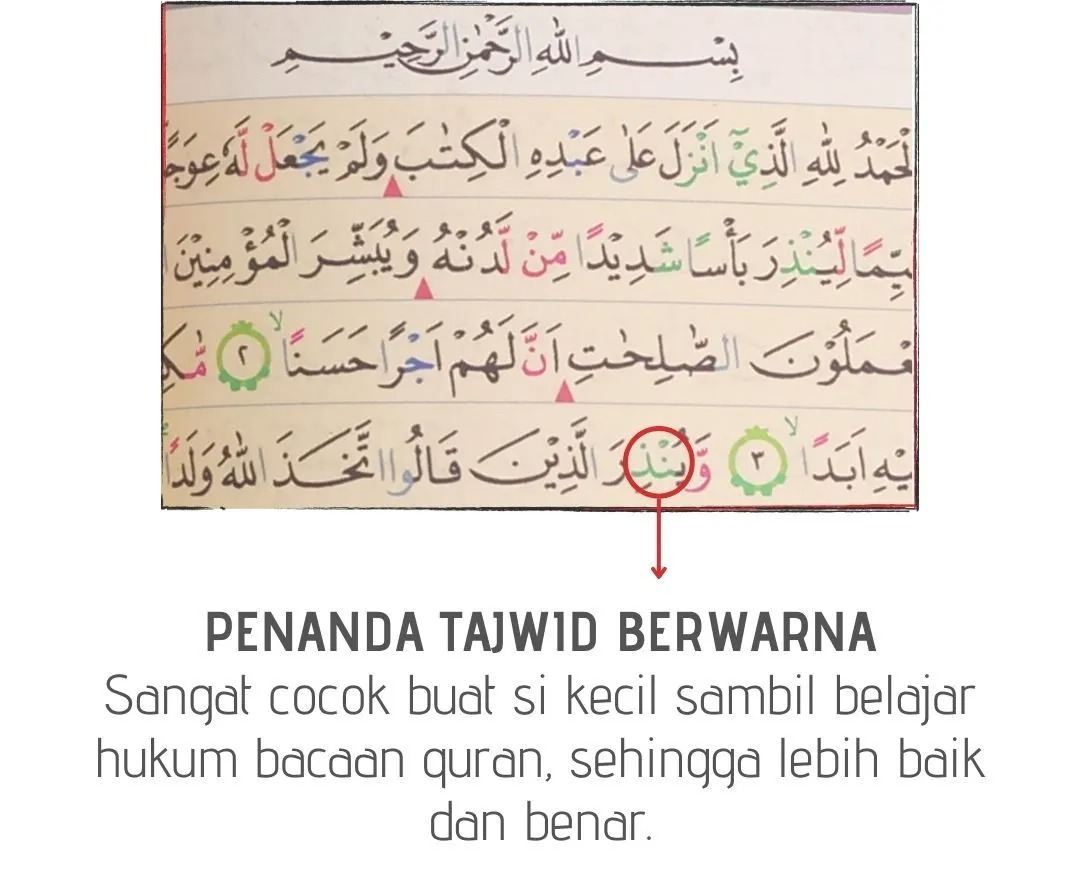 بِسْــــمِ اللّٰهِ الرَّحْمٰنِ الرَّحِيْـــمِ
لْحَمْدُ لِلّٰهِ الَّذِيْٓ اَنْزَلَ عَلٰى عَبْدِهِ الْكِتٰبَ وَلَمْ يَجْعَلْ لَّهٗ عِوَجًا
يِّمًا لِّيُنْذِرَ بَأْسًا شَدِيْدًا مِّنْ لَّدُنْهُ وَيُبَشِّرَ الْمُؤْمِنِيْنَ
عْمَلُوْنَ الصّٰلِحٰتِ اَنَّ لَهُمْ اَجْرًا حَسَنًا ۙ ٢ مّٰكِ
يْهِ اَبَدًا ۙ ٣ وَّيُنْذِرَ الَّذِيْنَ قَالُوا اتَّخَذَ اللّٰهُ وَلَدًا
PENANDA TAJWID BERWARNA
Sangat cocok buat si kecil sambil belajar
hukum bacaan quran, sehingga lebih baik
dan benar.